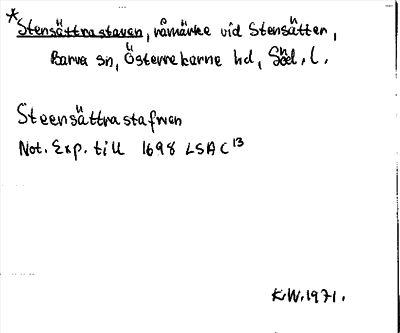 *Stensättrastaven, råmärke vid Stensätter,
Barva sn, Österrekarne hd, Söd. l.
Steensättrastafwen
Not. Exp. till 1698 LSA C¹³
K.W. 1971.